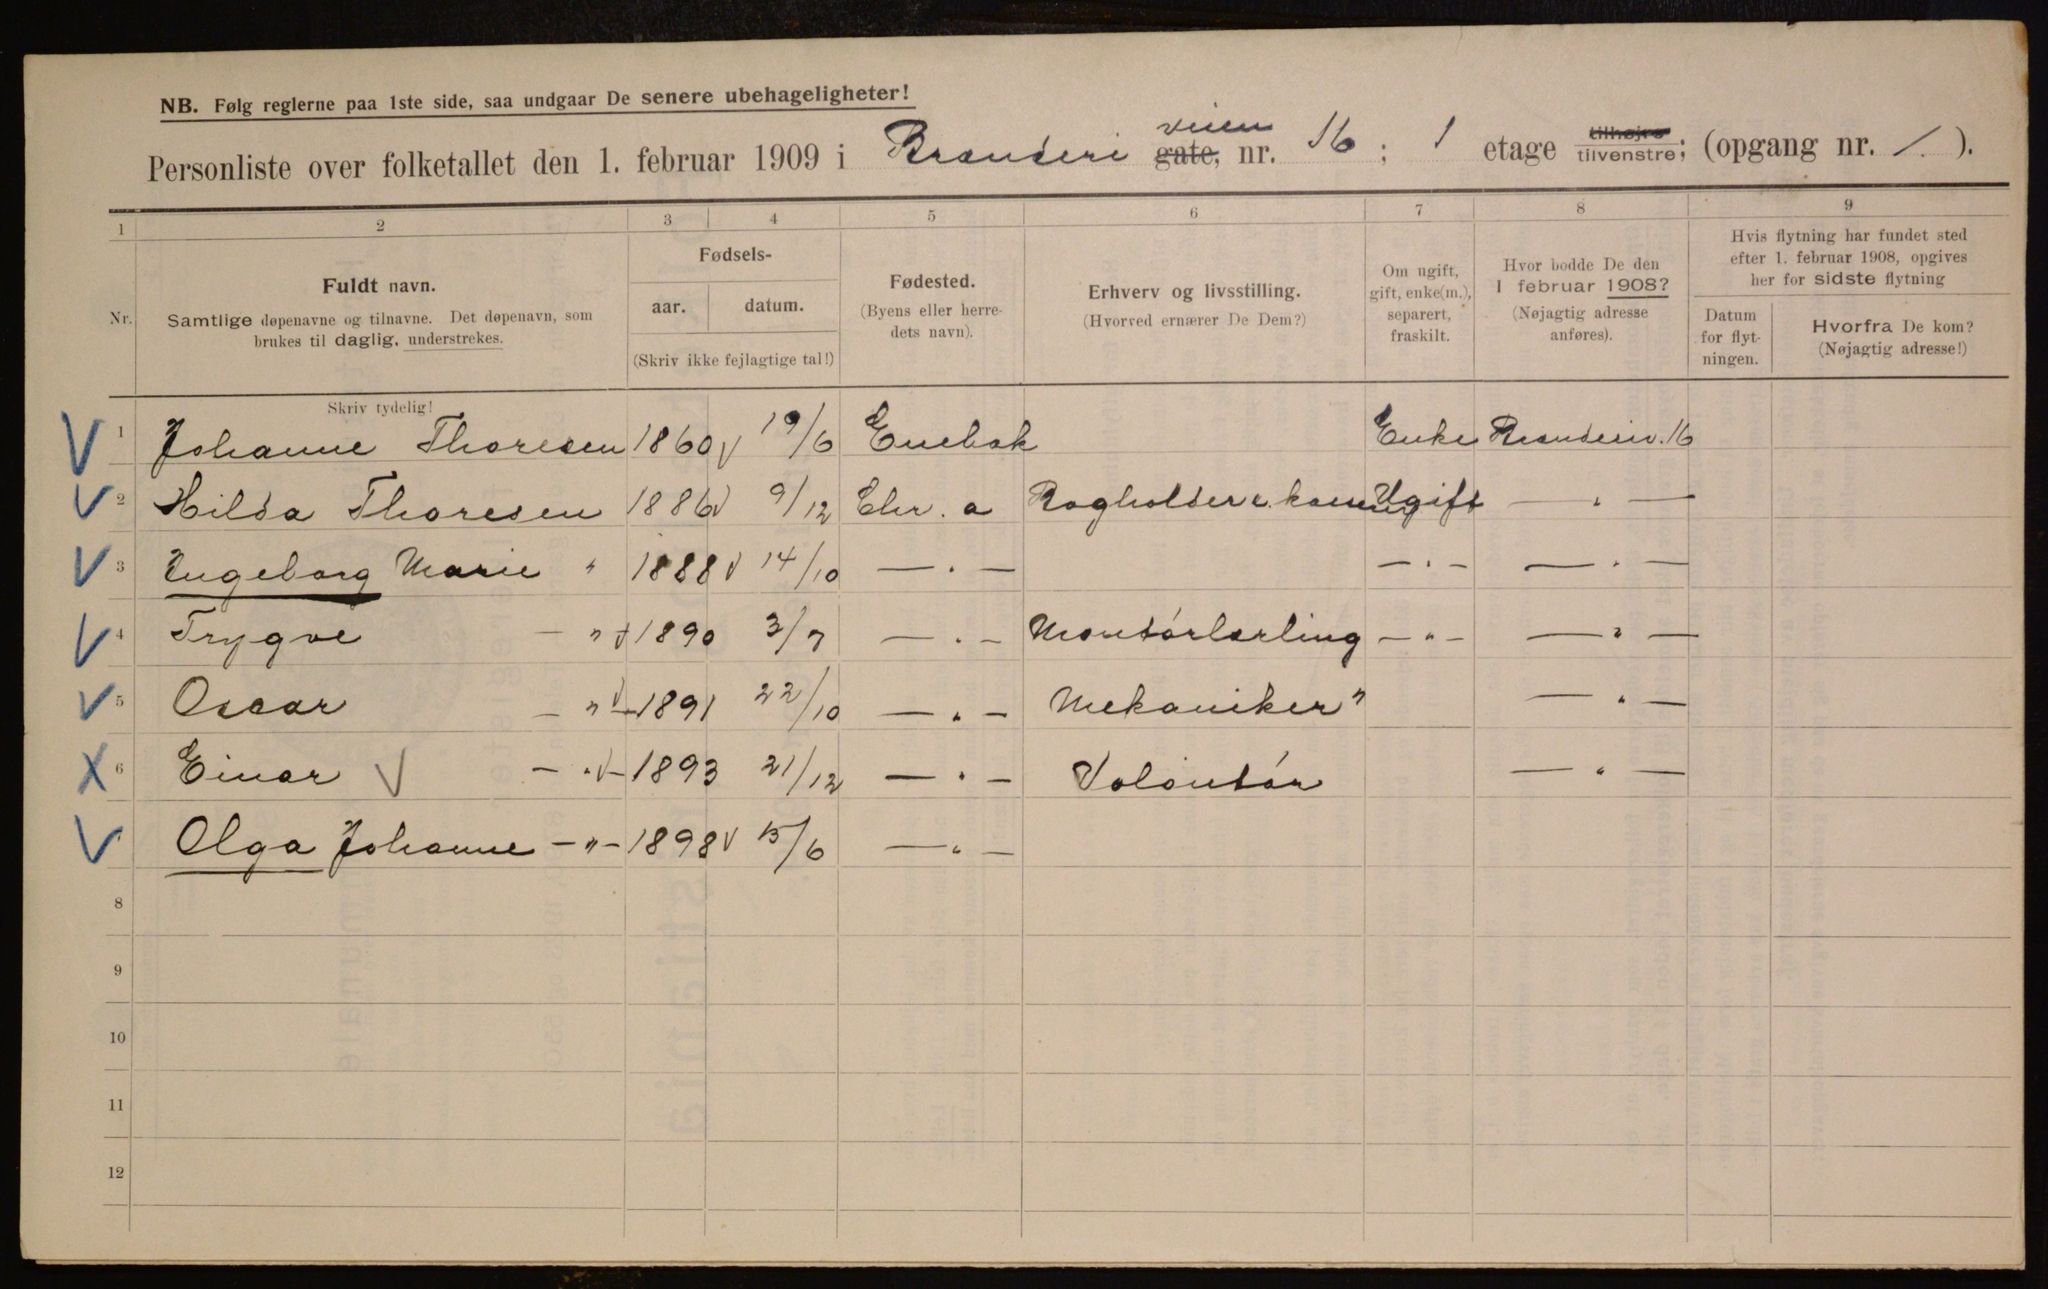 NB. Følg reglerne paa 1ste side, saa undgaar De senere ubehageligheter!
Personliste over folketallet den 1. februar 1909 i Brænderi gate, veien nr. 16 ; 1 etage tilhøjre tilvenstre; (opgang nr. 1. ).
1 2 3 4 5 6 7 8 9
Nr.
Fuldt navn.
Samtlige døpenavne og tilnavne. Det døpenavn, som
brukes til daglig, understrekes.
Skriv tydelig!
Fødsels-
aar. datum.
(Skriv ikke fejlagtige tal!)
Fødested.
(Byens eller herre-
dets navn).
Erhverv og livsstilling.
(Hvorved ernærer De Dem?)
Om ugift,
gift, enke(m.),
separert,
fraskilt.
Hvor bodde De den
1 februar 1908?
(Nøjagtig adresse
anføres).
Hvis flytning har fundet sted
efter 1. februar 1908, opgives
her for sidste flytning
Datum
for flyt-
ningen.
Hvorfra De kom?
(Nøjagtig adresse!)
V 1 Johanne Thoresen 1860 V 19/6 Enebak Enke Brænderiv. 16
V 2 Hilda Thoresen 1886 V 9/12 Chr. a Bogholder Ugift — " —
V 3 Ingeborg Marie " 1888 V 14/10 — " — — " — — " —
V 4 Trygve — " 1890 3/7 — " — Montørlærling — " — — " —
V 5 Oscar — " V — 1891 22/10 — " — Mekaniker " — " —
X 6 Einar V — " V — 1893 21/12 — " — Volontør — " —
V Olga Johanne — " — 1898 V 15/6 — " —
8
9
10
11
12